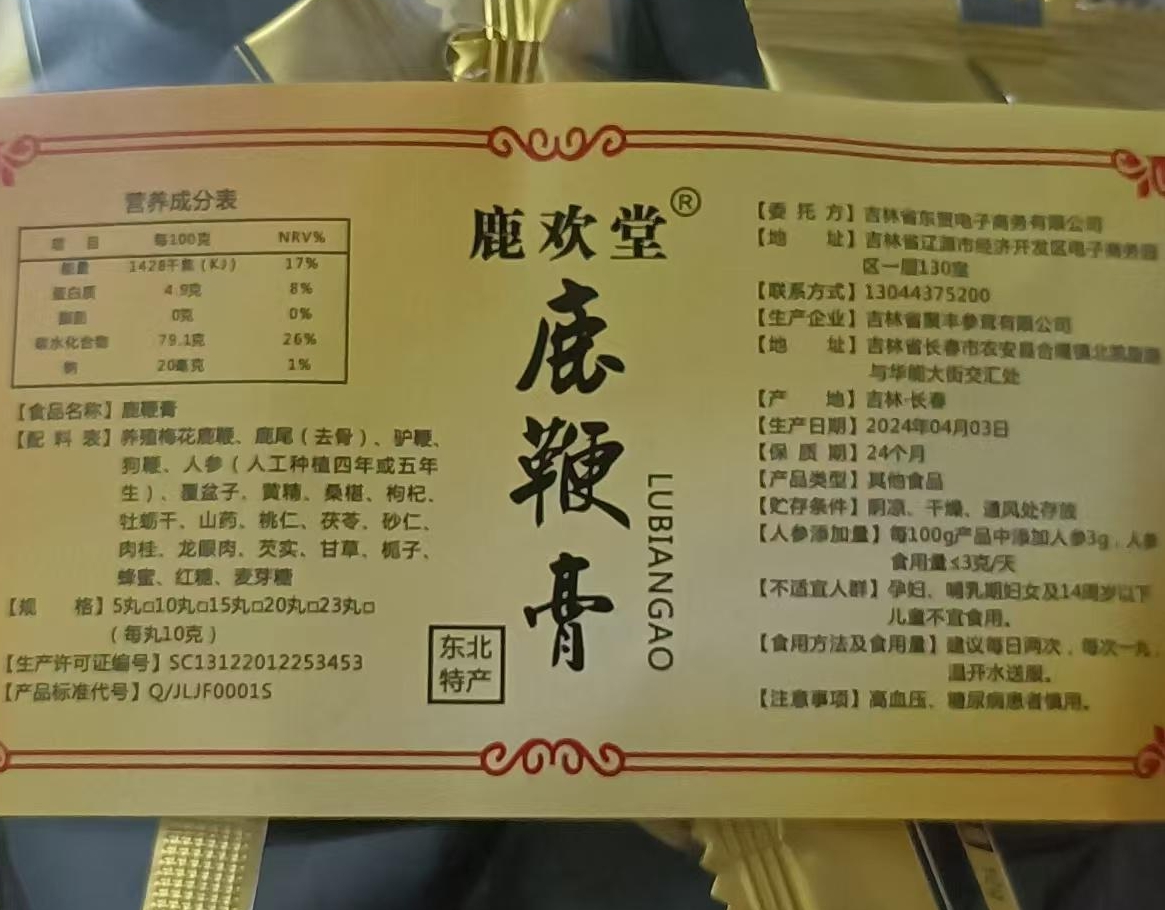 营养成分表
项 目 每100克 NRV%
能量 1428千焦（KJ） 17%
蛋白质 4.9克 8%
脂肪 0克 0%
碳水化合物 79.1克 26%
钠 20毫克 1%
【食品名称】鹿鞭膏
【配 料 表】养殖梅花鹿鞭、鹿尾（去骨）、驴鞭、
狗鞭、人参（人工种植四年或五年
生）、覆盆子、黄精、桑椹、枸杞、
牡蛎干、山药、桃仁、茯苓、砂仁、
肉桂、龙眼肉、芡实、甘草、栀子、
蜂蜜、红糖、麦芽糖
【规 格】5丸□10丸□15丸□20丸□23丸□
（每丸10克）
【生产许可证编号】SC13122012253453
【产品标准代号】Q/JLJF0001S
鹿欢堂®
鹿鞭膏
LUBIANGAO
东北
特产
【委 托 方】吉林省东贸电子商务有限公司
【地 址】吉林省辽源市经济开发区电子商务园
区一层130室
【联系方式】13044375200
【生产企业】吉林省聚丰参茸有限公司
【地 址】吉林省长春市农安县合隆镇北
与华能大街交汇处
【产 地】吉林·长春
【生产日期】2024年04月03日
【保 质 期】24个月
【产品类型】其他食品
【贮存条件】阴凉、干燥、通风处存放
【人参添加量】每100g产品中添加人参3g，人参
食用量≤3克/天
【不适宜人群】孕妇、哺乳期妇女及14周岁以下
儿童不宜食用。
【食用方法及食用量】建议每日两次，每次一丸，
温开水送服。
【注意事项】高血压、糖尿病患者慎用。